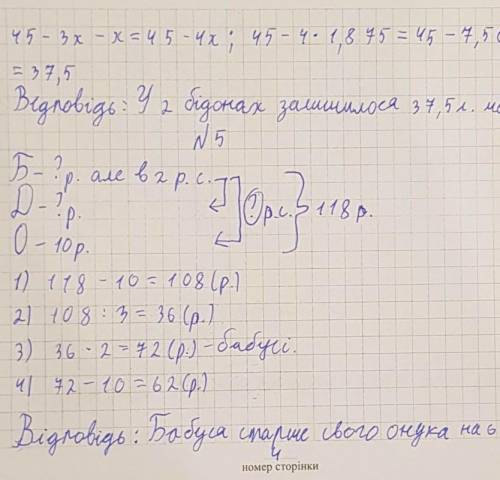 45 - 3x - x = 45 - 4x ; 45 - 4 · 1,875 = 45 - 7,5
= 37,5
Відповідь: У 2 бідонах залишилося 37,5 л. мо
N5
Б - ? р. але в 2 р. с.
Д - ? р.
О - 10 р.
? р. с.
118 р.
1) 118 - 10 = 108 (р.)
2) 108 : 3 = 36 (р.)
3) 36 · 2 = 72 (р.) - бабусі.
4) 72 - 10 = 62 (р.)
Відповідь: Бабуса старше свого онука на 6
4
номер сторінки